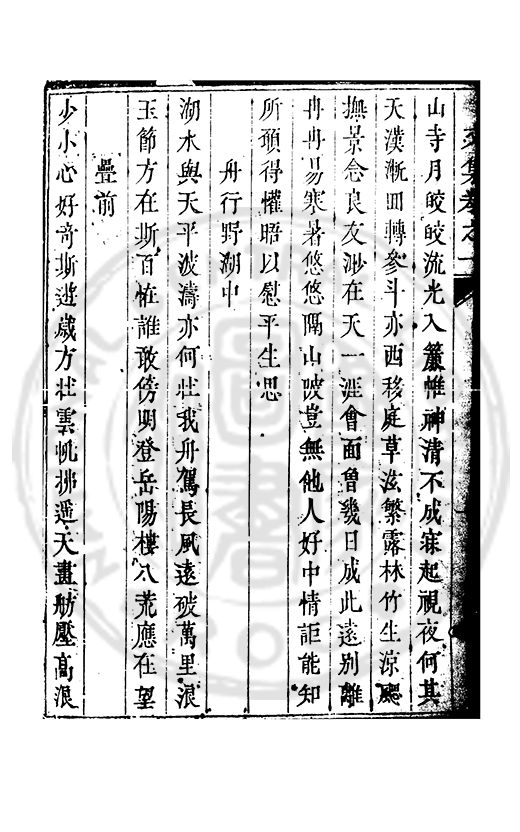 文集卷之一
山寺月皎皎流光入簾帷神清不成寐起視夜何其
天漢漸回轉參斗亦西移庭草滋繁露林竹生凉颸
撫景念良友渺在天一涯會面曾幾日成此遠別離
冉冉易寒暑悠悠隔山陂豈無他人好中情詎能知
所須得懽晤以慰平生思
舟行野湖中
湖水與天平波濤亦何壯我舟駕長風遠破萬里浪
玉節方在斯百恠誰敢傍明登岳陽樓八荒應在望
疊前
少小心好竒斯遊歲方壮雲帆拂遁天畫舫壓高浪